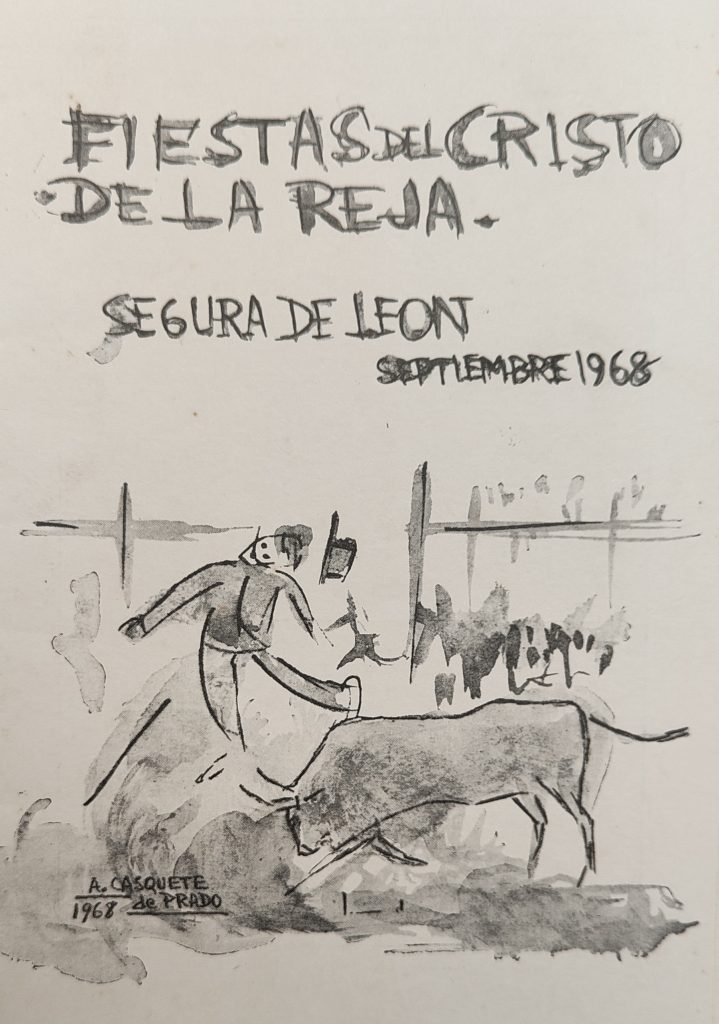 FIESTAS DEL CRISTO
·DE LA REJA.
SEGURA DE LEON
SEPTIEMBRE 1968
A. CASQUETE
1968 de PRADO